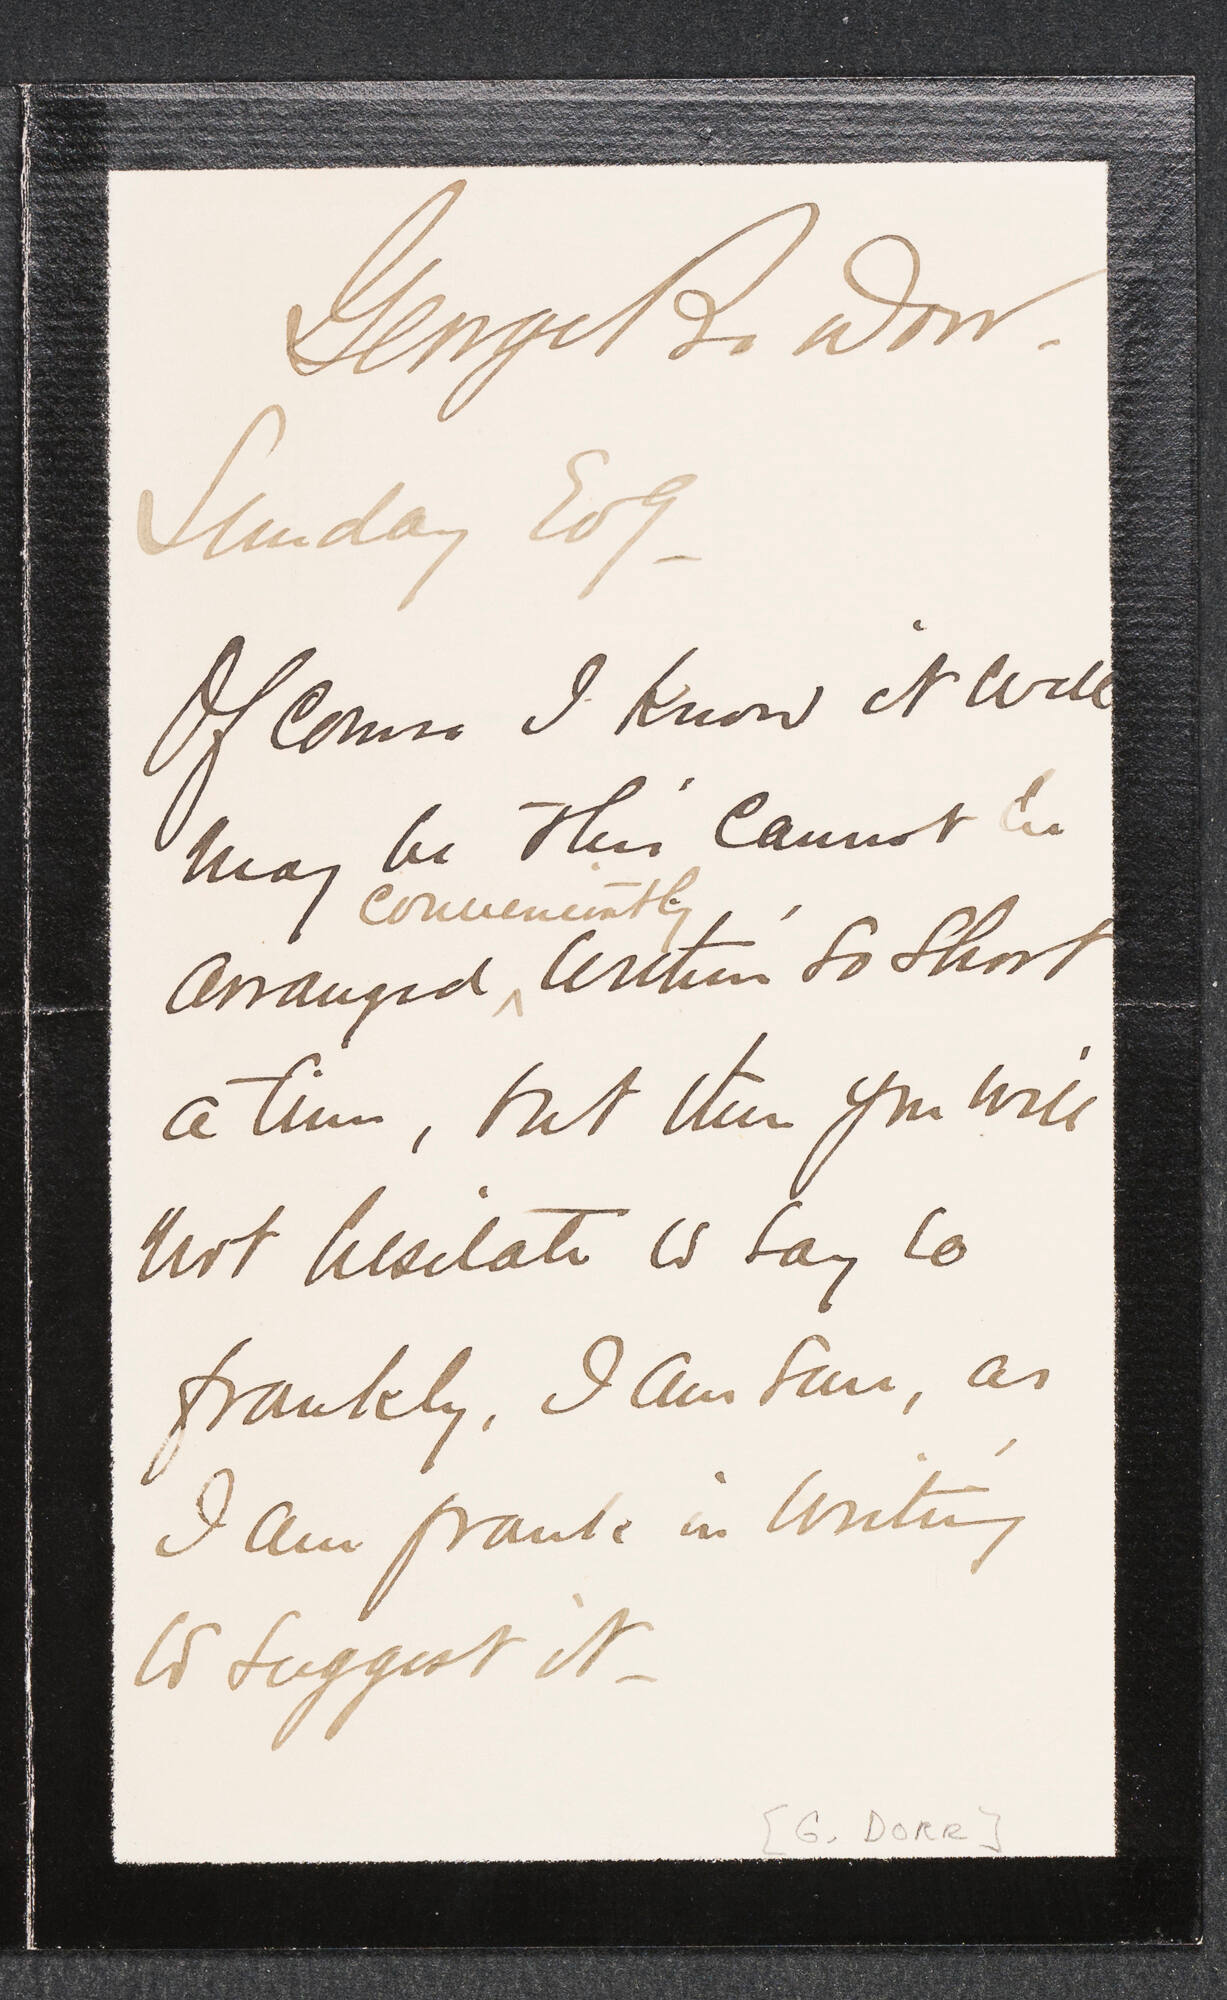 George B. Dorr.
Sunday Evg_
Of course I know it well
may be this cannot be
conveniently
arranged ^ within so short
a time, but then you will
not hesitate to say so
frankly, I am sure, as
I am frank in writing
to suggest it_
[G. DORR]